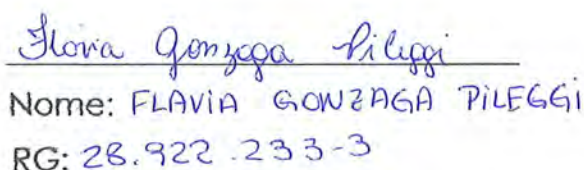 Flavia Gonzaga Pileggi
Nome: FLAVIA GONZAGA PILEGGI
RG: 28.922.233-3